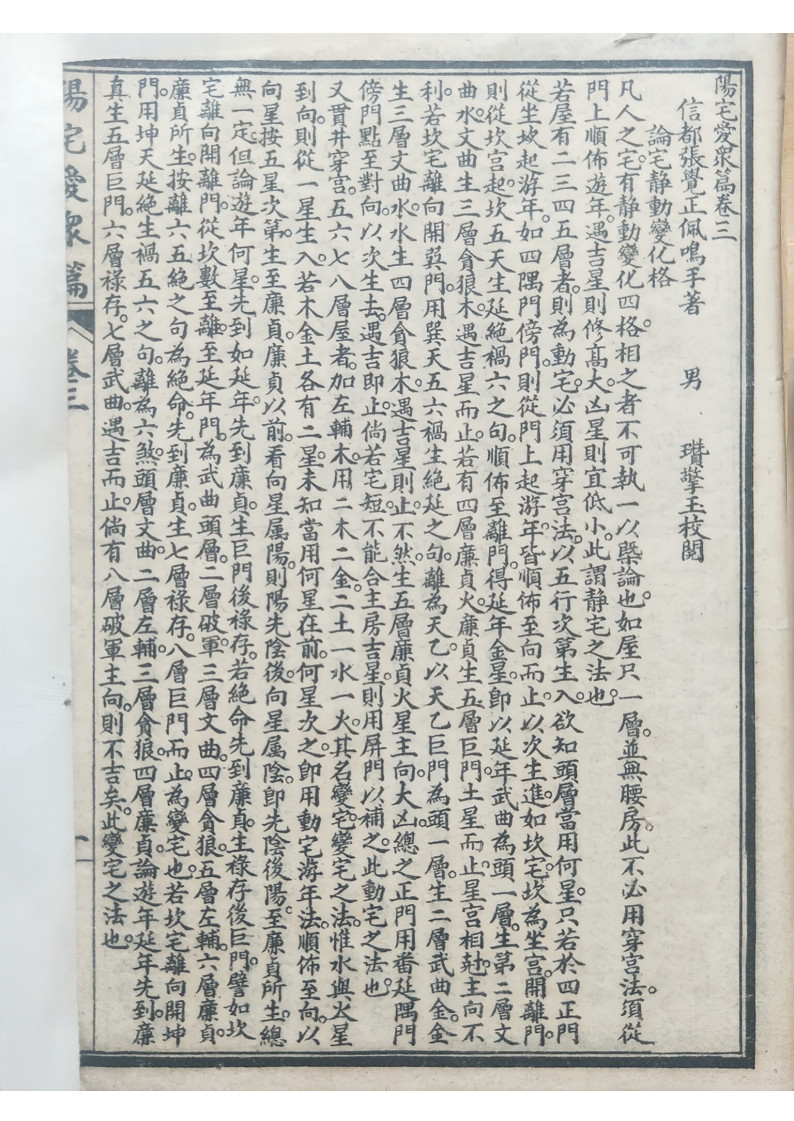 陽宅愛衆篇卷三
信都張覺正佩鳴手著 男 瓚擎玉校閱
論宅静動變化格
凡人之宅。有静動變化四格。相之者不可執一以槩論也。如屋只一層。並無腰房。此不必用穿宫法。須從
門上順佈遊年。遇吉星則修高大。凶星則宜低小。此謂静宅之法也。
若屋有二三四五層者。則為動宅。必須用穿宫法。以五行次第生入。欲知頭層當用何星。只若於四正門
從坐坎起游年。如四隅門傍門。則從門上起游年。皆順佈至向而止。以次生進。如坎宅。坎為坐宫。開離門。
則從坎宫起坎五天生延絶禍六之句。順佈至離門。得延年金星。卽以延年武曲為頭一層。生第二層文
曲水。文曲生三層貪狼木。遇吉星而止。若有四層廉貞火。廉貞生五層巨門土星而止。星宫相尅。主向不
利。若坎宅離向開巽門。用巽天五六禍生絶延之句。離為天乙。以天乙巨門為頭一層。生二層武曲金。金
生三層文曲水。水生四層貪狼木。遇吉星則止。不然。生五層廉貞火星主向大凶。總之正門用番延。隅門
傍門點至對向。以次生去。遇吉卽止。倘若宅短。不能合主房吉星。則用屏門以補之。此動宅之法也。
又貫井穿宫。五六七八層屋者。加左輔木。用二木二金。二土一水一火。其名變宅。變宅之法。惟水與火星
到向。則從一星生入。若木金土各有二星。未知當用何星在前。何星次之。卽用動宅游年法。順佈至向。以
向星按五星次第。生至廉貞。廉貞以前。看向星属陽。則陽先陰後。向星属陰。卽先陰後陽。至廉貞所生。總
無一定。但論遊年何星先到。如延年先到。廉貞生巨門後禄存。若絶命先到。廉貞主禄存後巨門。譬如坎
宅離向開離門。從坎數至離。至延年門。為武曲頭層。二層破軍。三層文曲。四層貪狼。五層左輔。六層廉貞
廉貞所生。按離六五絶之句為絶命。先到廉貞。生七層禄存。八層巨門而止。為變宅也。若坎宅離向開坤
門。用坤天延絶生禍五六之句。離為六煞。頭層文曲。二層左輔。三層貪狼。四層廉貞。論遊年延年先到。廉
真生五層巨門。六層禄存。七層武曲。遇吉而止。倘有八層破軍主向。則不吉矣。此變宅之法也。
陽宅愛衆篇 卷三 一